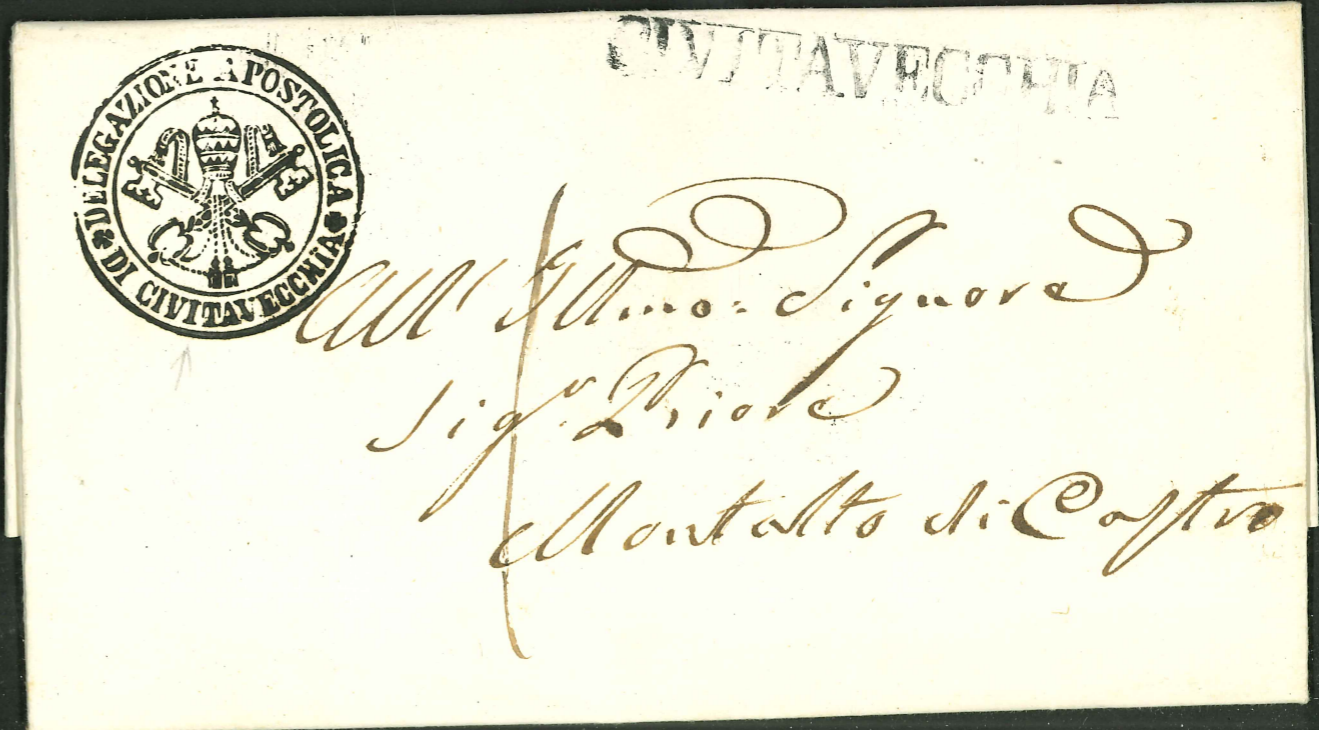 DELEGAZIONE APOSTOLICA
DI CIVITAVECCHIA
CIVITAVECCHIA
All' Illmo: Signore
Sigr. Priore
Montalto di Castro